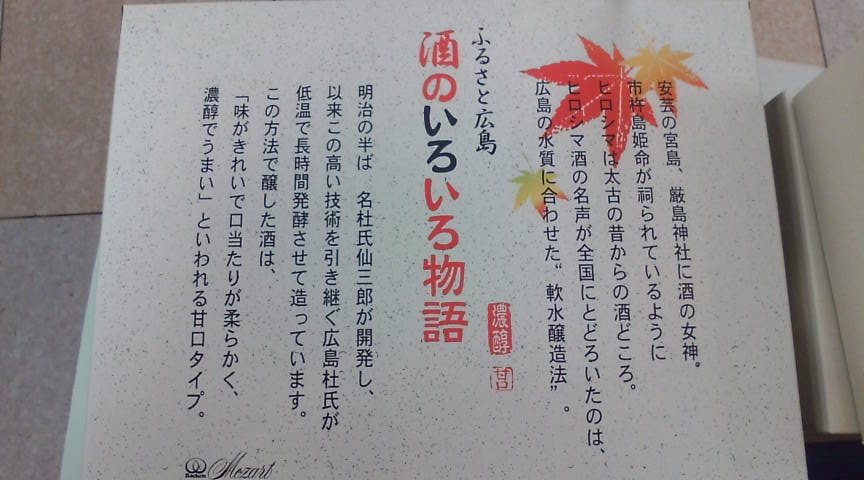 安芸の宮島、厳島神社に酒の女神。
市杵島姫命が祠られているように
ヒロシマは太古の昔からの酒どころ。
ヒロシマ酒の名声が全国にとどろいたのは、
広島の水質に合わせた“軟水醸造法”。
ふるさと広島
酒のいろいろ物語
濃醇
甘口
明治の半ば 名杜氏仙三郎が開発し、
以来この高い技術を引き継ぐ広島杜氏が
低温で長時間発酵させて造っています。
この方法で醸した酒は、
「味がきれいで口当たりが柔らかく、
濃醇でうまい」といわれる甘口タイプ。
Mozart